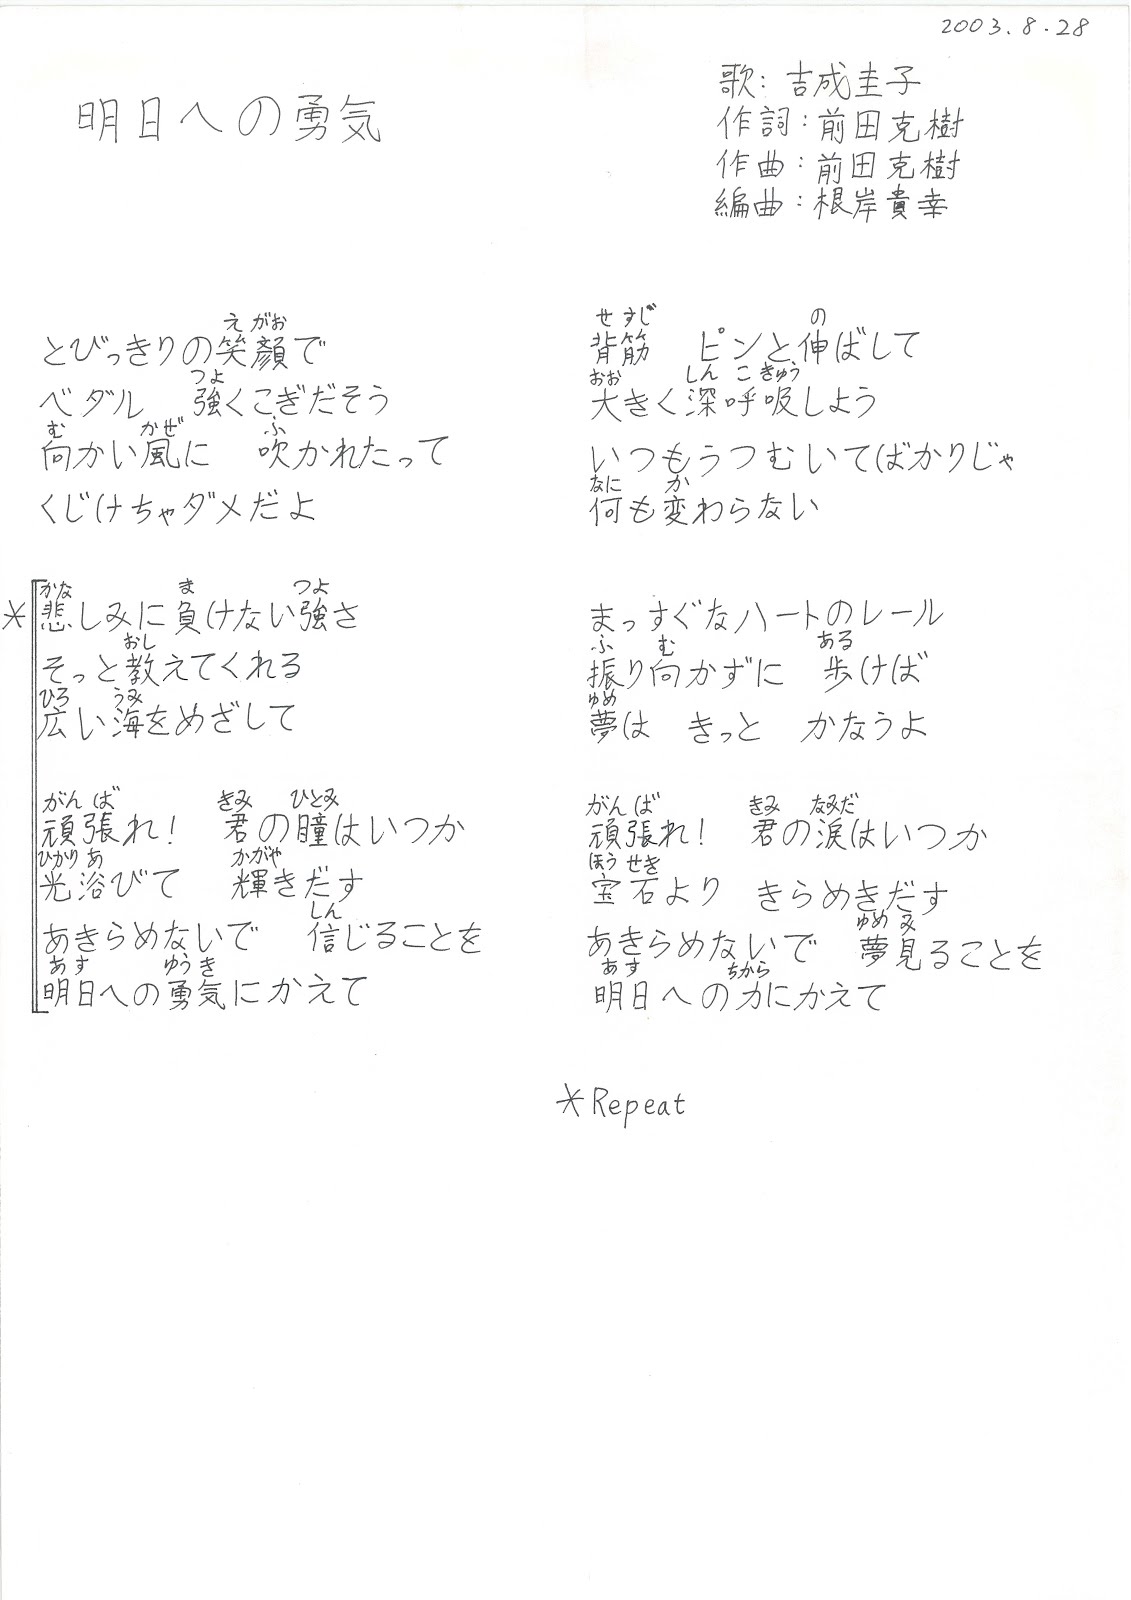 2003.8.28
明日への勇気
歌：吉成圭子
作詞：前田克樹
作曲：前田克樹
編曲：根岸貴幸
えがお
とびっきりの笑顔で
つよ
ペダル　強くこぎだそう
む　かぜ　ふ
向かい風に　吹かれたって
くじけちゃダメだよ
かな　ま　つよ
＊悲しみに負けない強さ
おし
そっと教えてくれる
ひろ　うみ
広い海をめざして
がんば　きみ　ひとみ
頑張れ！　君の瞳はいつか
ひかりあ　かがや
光浴びて　輝きだす
しん
あきらめないで　信じることを
あす　ゆうき
明日への勇気にかえて
せすじ　の
背筋　ピンと伸ばして
おお　しんこきゅう
大きく深呼吸しよう
いつもうつむいてばかりじゃ
なに　か
何も変わらない
まっすぐなハートのレール
ふ　む　ある
振り向かずに　歩けば
ゆめ
夢は　きっと　かなうよ
がんば　きみ　なみだ
頑張れ！　君の涙はいつか
ほうせき
宝石より　きらめきだす
ゆめみ
あきらめないで　夢見ることを
あす　ちから
明日への力にかえて
＊Repeat